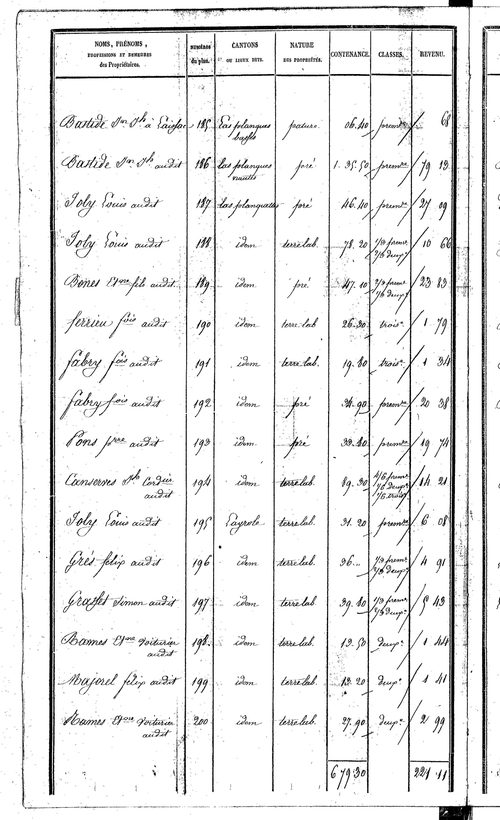 NOMS, PRÉNOMS, PROFESSIONS ET DEMEURES des Propriétaires. NUMÉROS du plan. CANTONS OU LIEUX DITS. NATURE DES PROPRIÉTÉS. CONTENANCE. CLASSES. REVENU.
Bastide Jn Jh à 185 Las planques basses pature 06.40 premre 68
Bastide Jn Jh audit 186 las planques hautes pré 1.35.50 premre 79 13
Joly Louis audit 187 las planquettes pré 46.40 premre 27 09
Joly Louis audit 188 idem terre lab. 78.20 1/3 premre 2/3 deuxe 10 66
Bones Etne fils audit 189 idem pré 47.10 2/3 deuxe 23 83
ferrieu fois audit 190 idem terre lab 26.30 troise 1 79
fabry fois audit 191 idem terre lab. 19.80 troise 1 34
fabry fois audit 192 idem pré 34.90 premre 20 38
Pons pre audit 193 idem pré 33.80 premre 19 74
audit 194 idem terre lab. 89.30 4/6 premre 1/6 deuxe 1/6 troise 14 21
Joly Louis audit 195 Layrole terre lab. 31.20 premre 6 08
Grés félix audit 196 idem terre lab. 36... 1/3 premre 2/3 deuxe 4 91
Grasset Simon audit 197 idem terre lab. 39.80 1/3 premre 2/3 deuxe 5 43
Rames Etne voiturier audit 198 idem terre lab. 13.50 deuxe 1 44
Majorel félix audit 199 idem terre lab. 13.20 deuxe 1 41
Rames Etne voiturier audit 200 idem terre lab. 27.90 deuxe 2 99
679.30 221 11